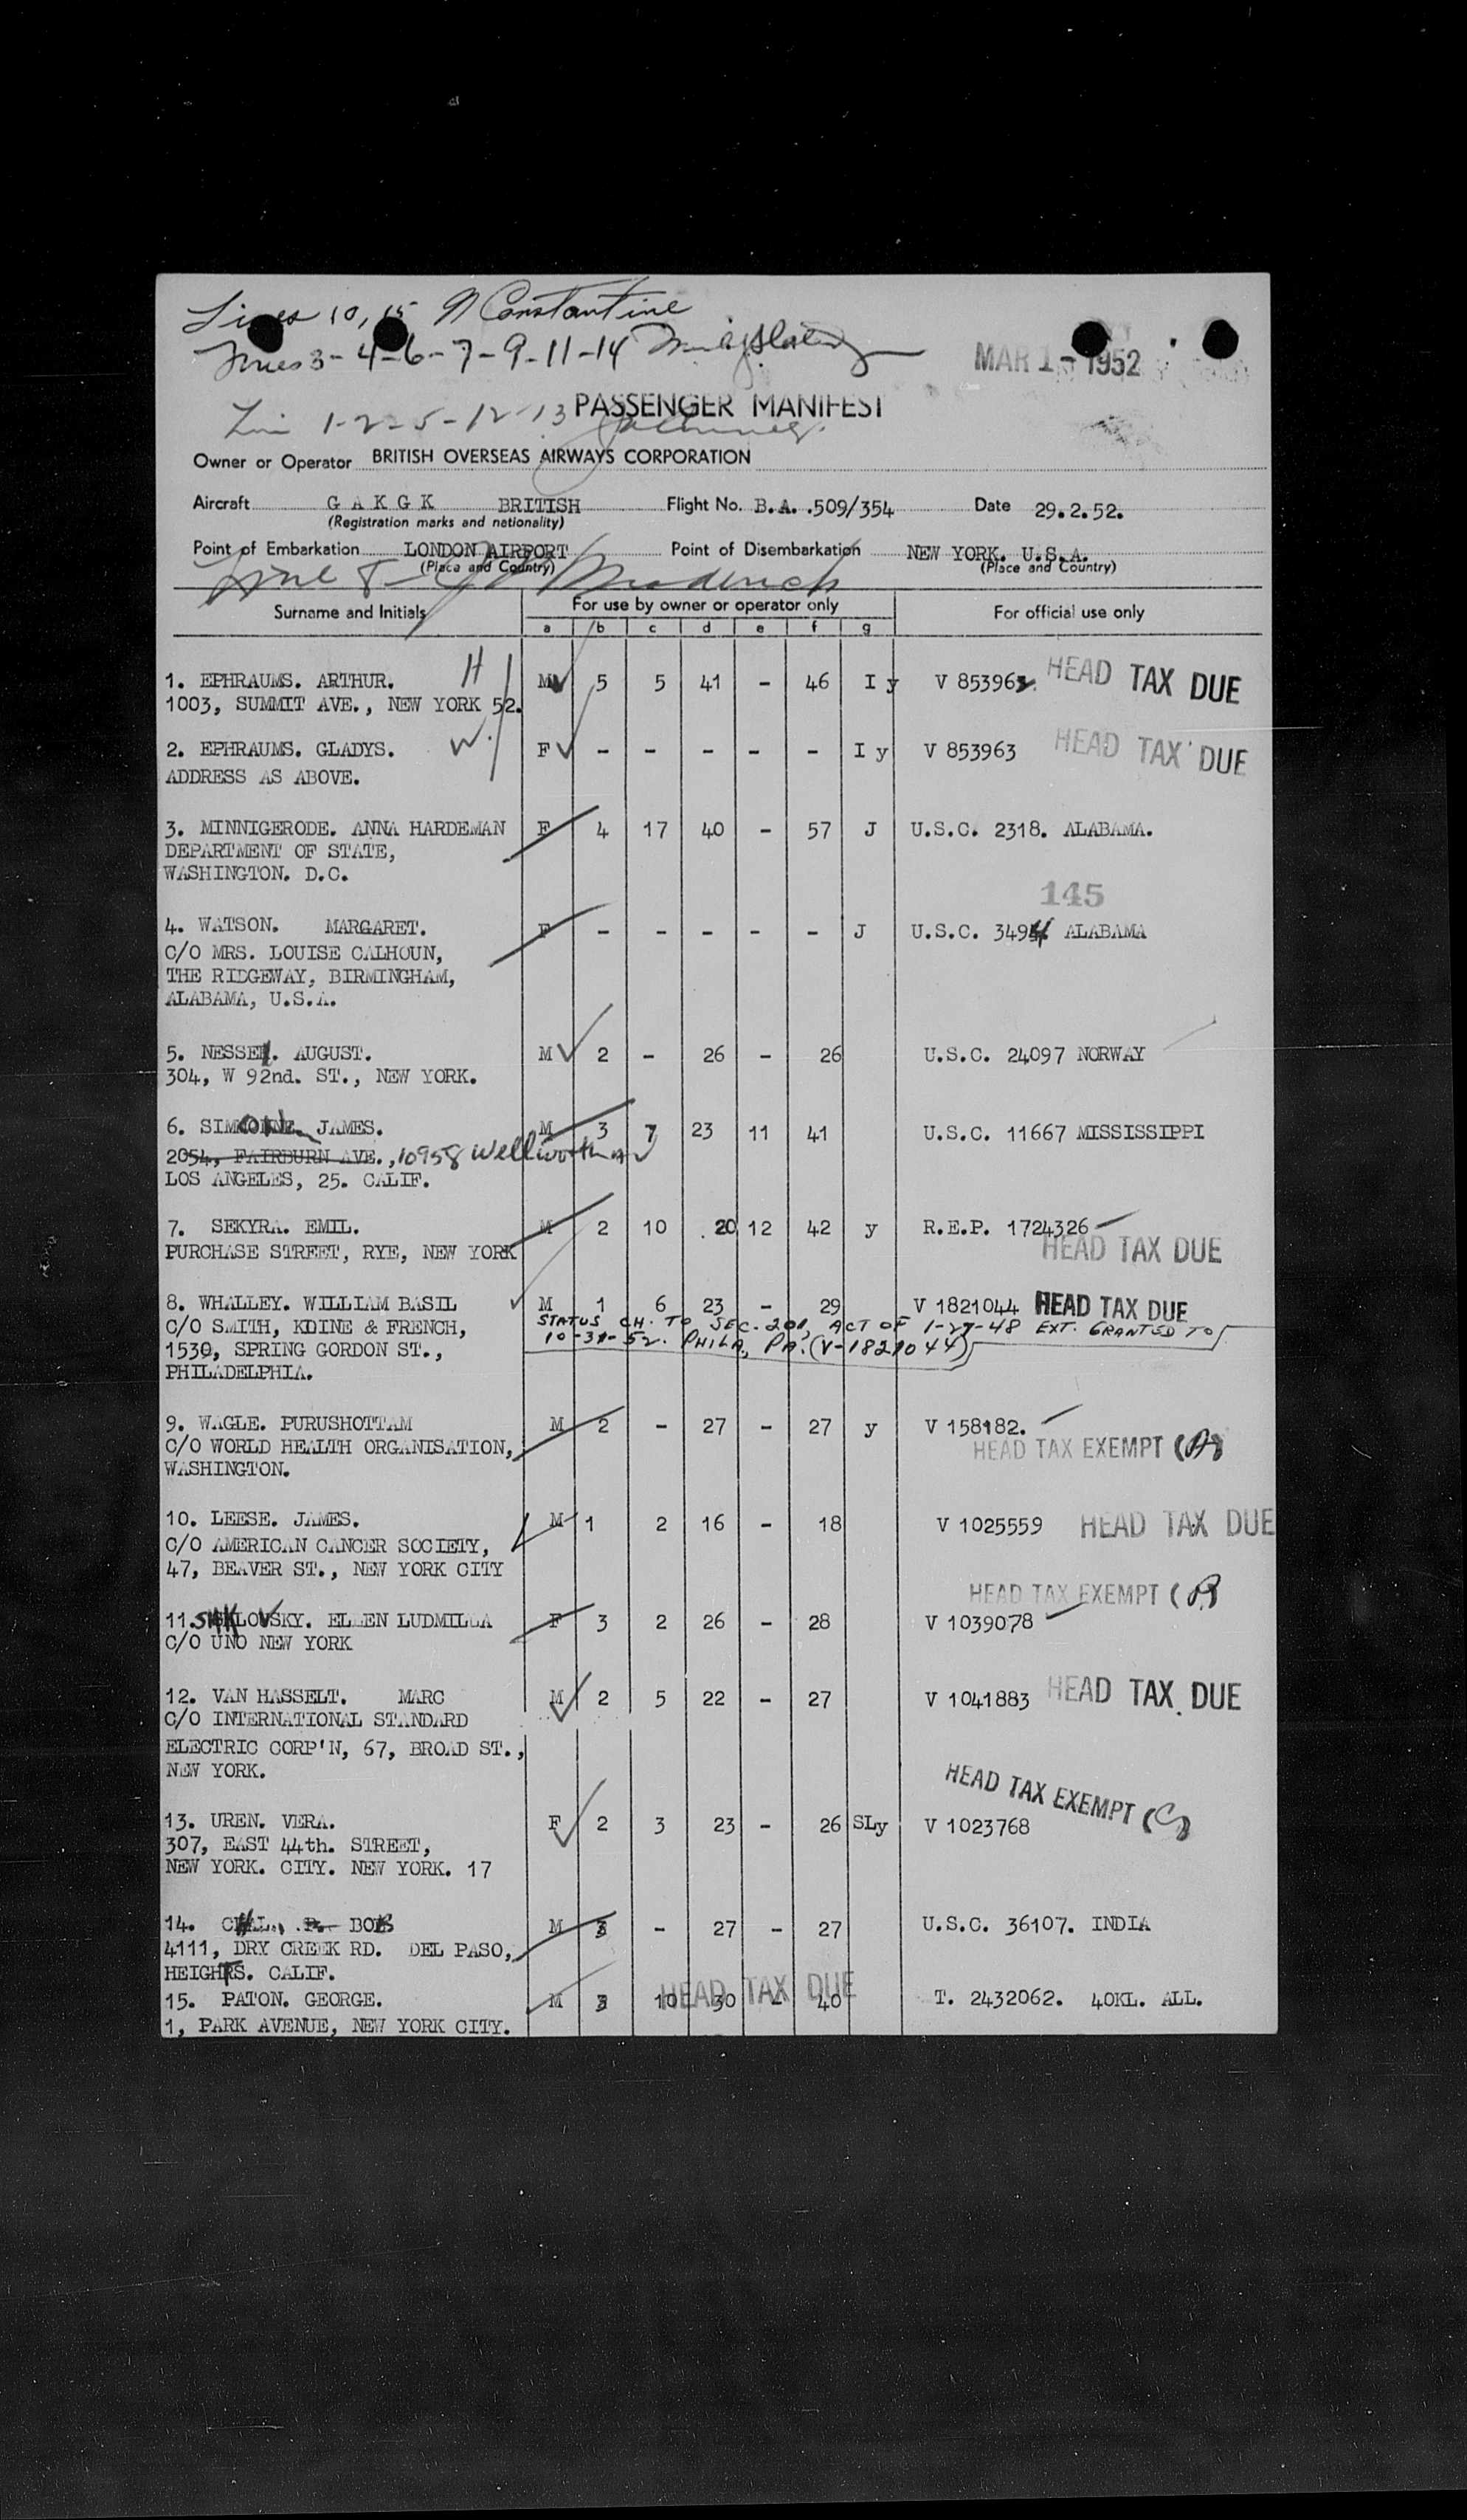 Lines 10, 15 N Constantine
Lines 3-4-6-7-9-11-14
MAR 1 - 1952
PASSENGER MANIFEST
Lin 1-2-5-12-13
Owner or Operator BRITISH OVERSEAS AIRWAYS CORPORATION
Aircraft G A K G K BRITISH Flight No. B.A. .509/354 Date 29.2.52.
(Registration marks and nationality)
Point of Embarkation LONDON AIRPORT Point of Disembarkation NEW YORK. U.S.A.
(Place and Country) (Place and Country)
Line 8
Surname and Initials For use by owner or operator only For official use only
a b c d e f g
1. EPHRAUMS. ARTHUR. H M 5 5 41 - 46 I y V 853962. HEAD TAX DUE
1003, SUMMIT AVE., NEW YORK 52.
2. EPHRAUMS. GLADYS. W. F - - - - - I y V 853963 HEAD TAX DUE
ADDRESS AS ABOVE.
3. MINNIGERODE. ANNA HARDEMAN F 4 17 40 - 57 J U.S.C. 2318. ALABAMA.
DEPARTMENT OF STATE,
WASHINGTON. D.C.
145
4. WATSON. MARGARET. F - - - - - J U.S.C. 3494 ALABAMA
C/O MRS. LOUISE CALHOUN,
THE RIDGEWAY, BIRMINGHAM,
ALABAMA, U.S.A.
5. NESSE. AUGUST. M 2 - 26 - 26 U.S.C. 24097 NORWAY
304, W 92nd. ST., NEW YORK.
6. JAMES. M 3 7 23 11 41 U.S.C. 11667 MISSISSIPPI
2054, FAIRBURN AVE., 10958 Wellworth Av
LOS ANGELES, 25. CALIF.
7. SEKYRA. EMIL. M 2 10 . 20 12 42 y R.E.P. 1724326
PURCHASE STREET, RYE, NEW YORK HEAD TAX DUE
8. WHALLEY. WILLIAM BASIL M 1 6 23 - 29 V 1821044 HEAD TAX DUE
C/O SMITH, KDINE & FRENCH, STATUS CH. TO SEC. 201, ACT OF 1-27-48 EXT. GRANTED TO
1530, SPRING GORDON ST., 10-31-52. PHILA, PA. (V-1821044)
PHILADELPHIA.
9. WAGLE. PURUSHOTTAM M 2 - 27 - 27 y V 158182.
C/O WORLD HEALTH ORGANISATION, HEAD TAX EXEMPT (A)
WASHINGTON.
10. LEESE. JAMES. M 1 2 16 - 18 V 1025559 HEAD TAX DUE
C/O AMERICAN CANCER SOCIETY,
47, BEAVER ST., NEW YORK CITY
HEAD TAX EXEMPT (
11. SHKLOVSKY. ELLEN LUDMILLA F 3 2 26 - 28 V 1039078
C/O UNO NEW YORK
12. VAN HASSELT. MARC M 2 5 22 - 27 V 1041883 HEAD TAX DUE
C/O INTERNATIONAL STANDARD
ELECTRIC CORP'N, 67, BROAD ST.,
NEW YORK.
HEAD TAX EXEMPT (C)
13. UREN. VERA. F 2 3 23 - 26 SLy V 1023768
307, EAST 44th. STREET,
NEW YORK. CITY. NEW YORK. 17
14. M 3 - 27 - 27 U.S.C. 36107. INDIA
4111, DRY CREEK RD. DEL PASO,
HEIGHTS. CALIF.
HEAD TAX DUE
15. PATON. GEORGE. M 3 10 30 - 40 T. 2432062. 40KL. ALL.
1, PARK AVENUE, NEW YORK CITY.